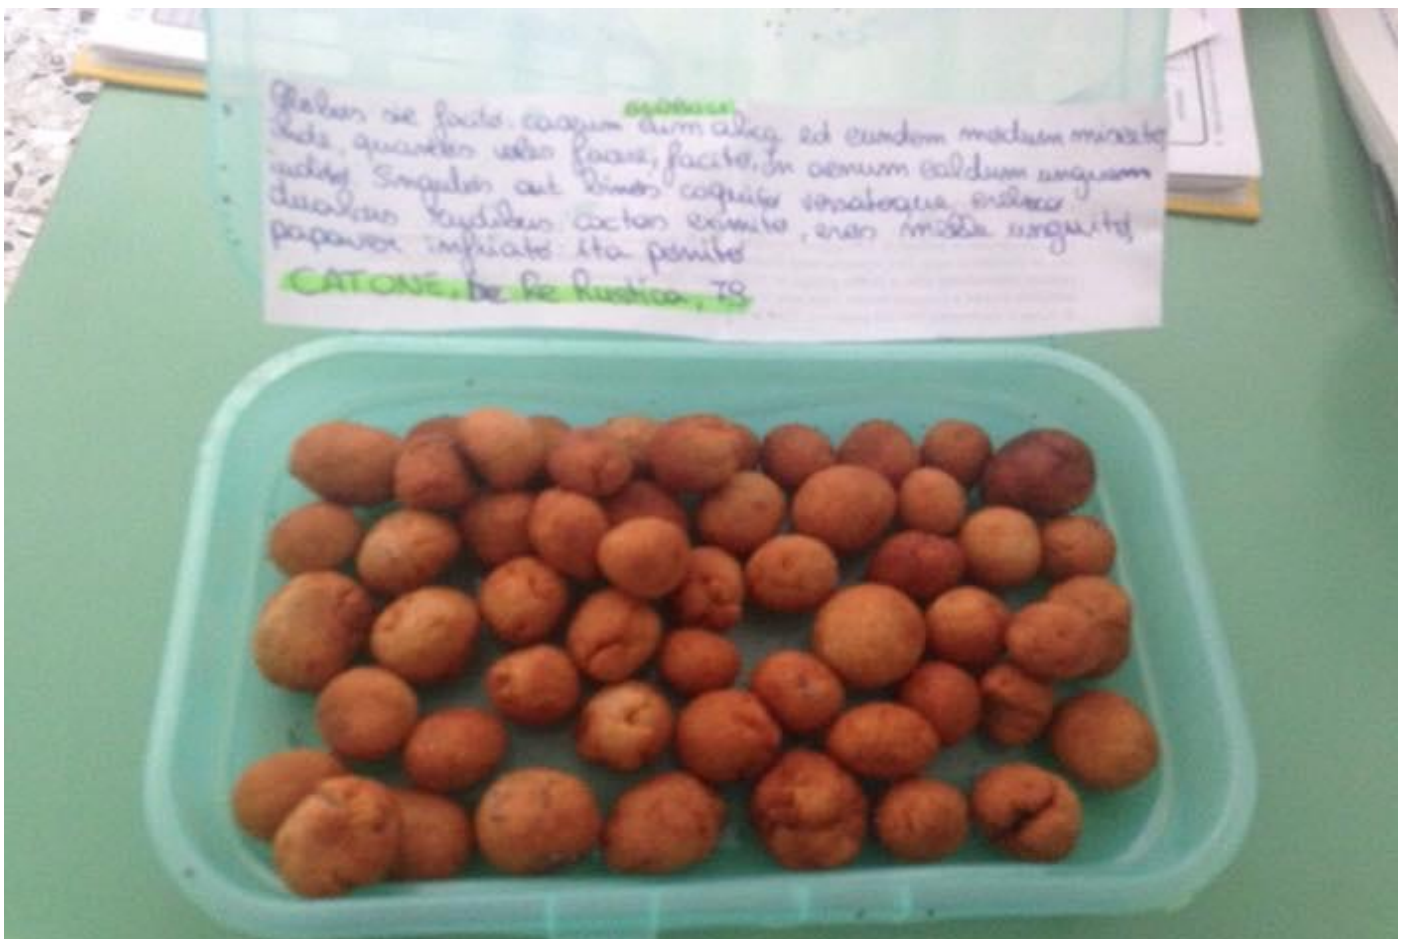 globuli
Globos sic facito. caseum cum alica ad eundem modum misceto
inde, quantos voles facere, facito. in aenum caldum unguem
indito. Singulos aut binos coquito versatoque crebro
duobus rudibus. coctos eximito, eos melle unguito,
papaver infriato ita ponito
CATONE, De Re Rustica, 79